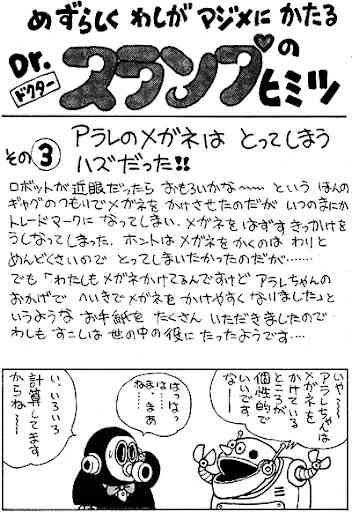 めずらしく わしが マジメに かたる
Dr.
ドクター
スランプの
ヒミツ
その③
アラレのメガネは とってしまう
ハズだった!!
ロボットが近眼だったら おもろいかな〜〜 という ほんの
ギャグのつもりでメガネを かけさせたのだが いつのまにか
トレードマークに なってしまい、メガネをはずす きっかけを
うしなってしまった。ホントは メガネをかくのは わりと
めんどくさいので とってしまいたかったのだが……
でも「わたしもメガネかけてるんですけど アラレちゃんの
おかげで へいきでメガネを かけやすく なりました」と
いうような お手紙を たくさん いただきましたので
わしも すこしは 世の中の役に たったようです…
いや〜〜
アラレちゃんは
メガネを
かけている
ところが
個性的で
いいです
な〜〜
はっはっ
は……
ま、まあ
ね…
い、いろいろ
計算してます
からね〜〜